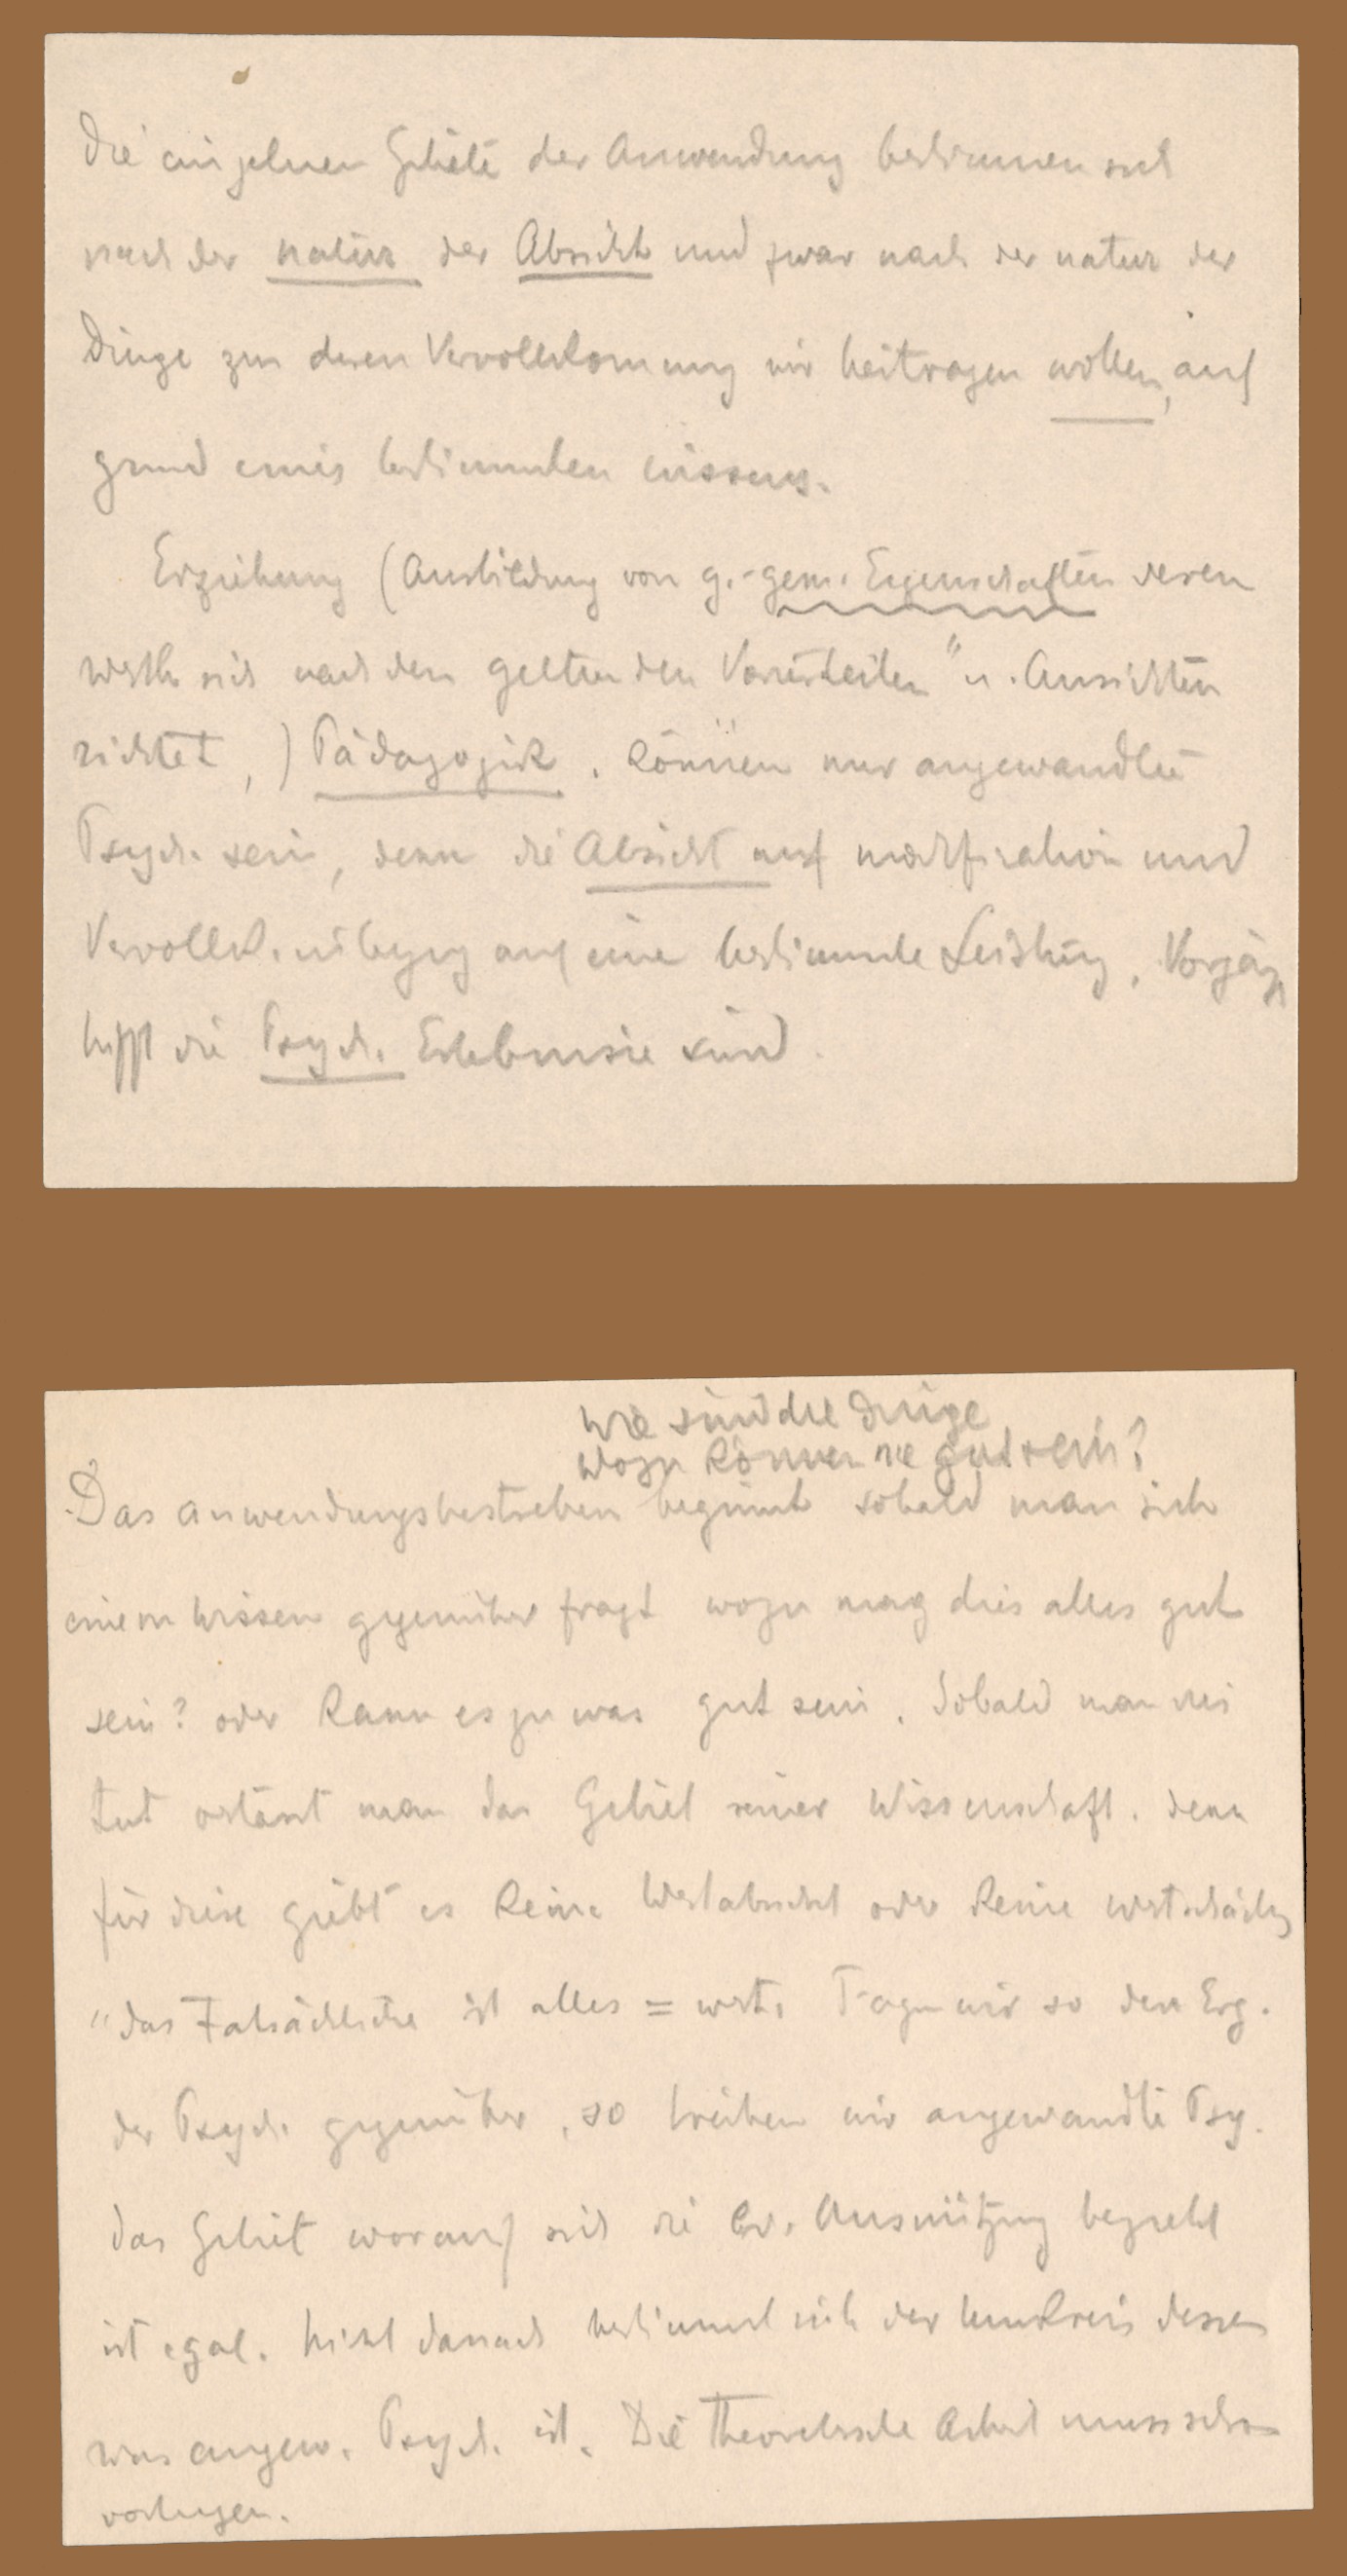 Die einzelnen Gebiete der Anwendung bestimmen sich
nach der Natur der Absicht und zwar nach der natur der
Dinge zu deren Vervollkommnung wir beitragen wollen, auf
grund eines bestimmten wissens.
Erziehung (Ausbildung von g.-gem. Eigenschaften deren
werth sich nach den geltenden Vorurteilen " u. Ansichten
richtet,) Pädagogik. können nur angewandte
Psych. sein, denn die Absicht auf modifikation und
Vervollk. in bezug auf eine bestimmte Leistung, Vorgang
trifft die Psych. Erlebnisse sind.
Wie sind die Dinge
Wozu können sie gut sein?
Das anwendungsbestreben beginnt sobald man sich
einem Wissen gegenüber fragt wozu mag dies alles gut
sein? oder kann es zu was gut sein. Sobald man dies
tut verlässt man das Gebiet seiner Wissenschaft. denn
für diese giebt es keine Wertabsicht oder keine wertschätzg
"das Tatsächliche ist alles = wert. Fragen wir so den Erg.
der Psych. gegenüber, so treiben wir angewandte Psy.
das Gebiet worauf sich die Ausnützung bezieht
ist egal. Nicht danach bestimmt sich der Umkreis dessen
was angew. Psych. ist. Die theoretische Arbeit muss schon
vorliegen.